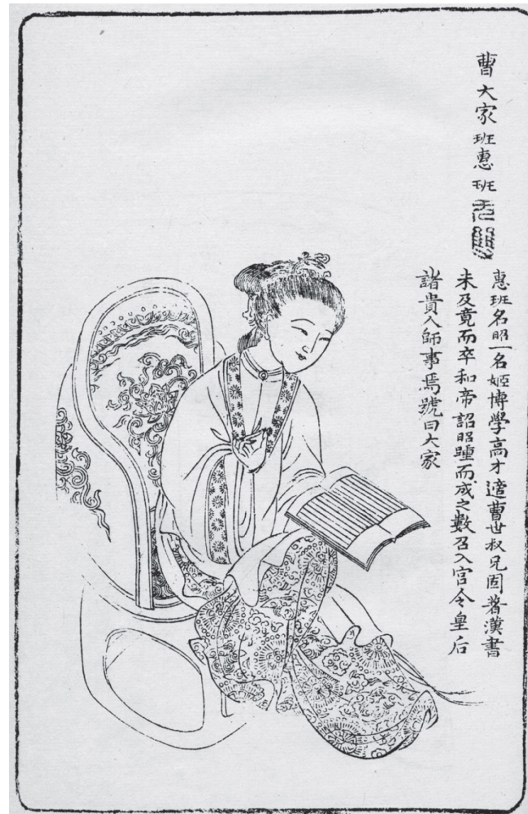 曹大家班惠班
惠班名昭一名姬博學高才適曹世叔兄固著漢書
未及竟而卒和帝詔昭踵而成之數召入宮令皇后
諸貴人師事焉號曰大家